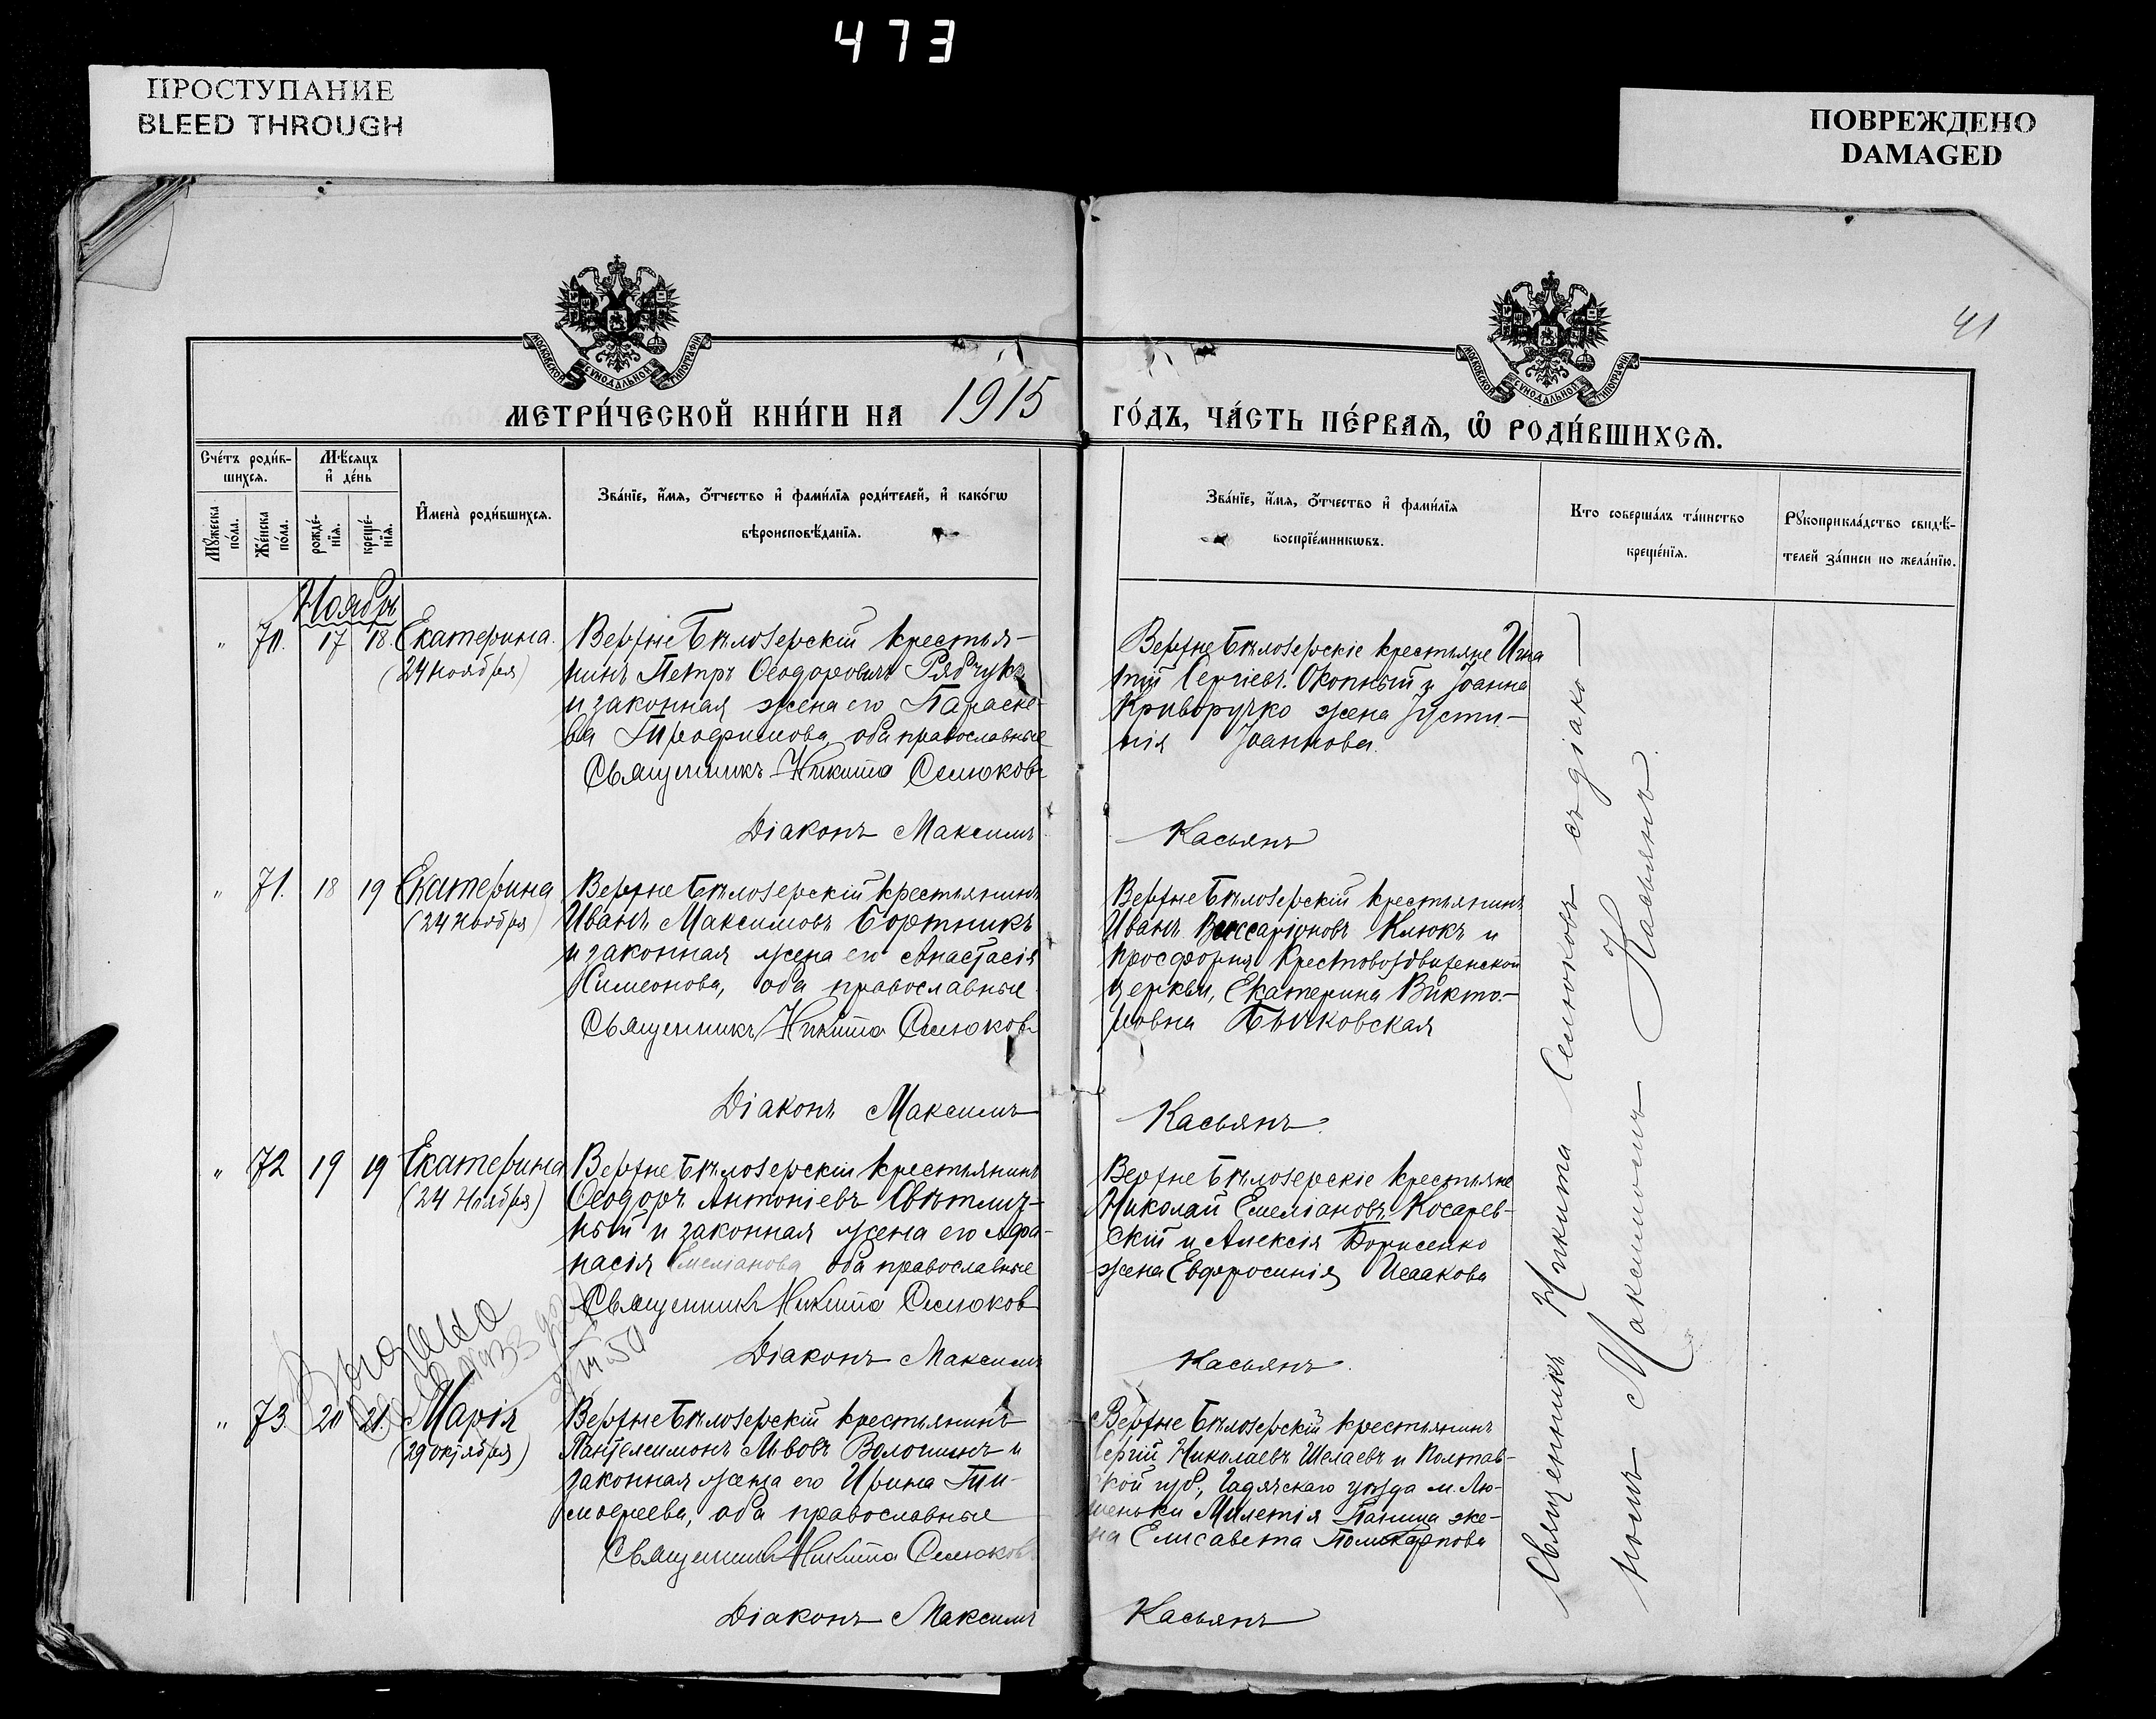 473
ПРОСТУПАНИЕ
BLEED THROUGH
ПОВРЕЖДЕНО
DAMAGED
41
МОСКОВСКОЙ СѴНОДАЛЬНОЙ ТИПОГРАФІИ
МОСКОВСКОЙ СѴНОДАЛЬНОЙ ТИПОГРАФІИ
МЕТРИ́ЧЕСКОЙ КНИ́ГИ НА 1915 ГО́ДЪ, ЧА́СТЬ ПЕ́РВАѦ, Ѡ҆ РОДИ́ВШИХСѦ.
Сче́тъ роди́в-
шихсѧ.
Мѣ́сѧцъ
и҆ де́нь
Мꙋ́жеска
по́ла.
Же́нска
по́ла.
рожде́-
нїѧ.
креще́-
нїѧ.
И҆мена̀ роди́вшихсѧ.
Зва́нїе, и҆́мѧ, ѻ҆́тчество и҆ фами́лїѧ роди́телей, и҆ како́гѡ
вѣроисповѣ́данїѧ.
Зва́нїе, и҆́мѧ, ѻ҆́тчество и҆ фами́лїѧ
воспрїе́мникѡвъ.
Кто̀ соверша́лъ та́инство
креще́нїѧ.
Рꙋкоприкла́дство свидѣ́-
телей за́писи по жела́нїю.
Ноябрь
" 70. 17 18. Екатерина.
(24 ноября)
Верхне Бѣлозерскій крестья-
нинъ Петръ Ѳеодоровичъ Рябчукъ
и законная жена его Параске-
ва Трофимова, оба православные
Священникъ Никита Селюковъ
Діаконъ Максимъ
Верхне Бѣлозерскіе крестьяне Игна
тій Сергіевъ Окопный и Іоанна
Криворучко жена Іусти-
нія Іоаннова.
Касьянъ
" 71. 18 19 Екатерина
(24 ноября)
Верхне Бѣлозерскій крестьянинъ
Иванъ Максимовъ Бортникъ
и законная жена его Анастасія
Симеонова, оба православные
Священникъ Никита Селюковъ
Діаконъ Максимъ
Верхне Бѣлозерскій крестьянинъ
Иванъ Виссаріоновъ Клюкъ и
просфорня Крестовоздвиженской
церкви, Екатерина Викто-
ровна Бычковская
Касьянъ.
" 72 19 19 Екатерина
(24 Ноября)
Верхне Бѣлозерскій крестьянинъ
Ѳеодоръ Антоніевъ Свѣтлич-
ный и законная жена его Афа-
насія Емеліанова оба православные
Священникъ Никита Селюковъ
Діаконъ Максимъ
Верхне Бѣлозерскіе крестьяне
Николай Емеліановъ Косарев-
скій и Алексія Борисенко
жена Евфросинія Исаакова
Касьянъ.
Выдана
" 73 20 21. Марія
(29 октября)
Верхне Бѣлозерскій крестьянинъ
Пантелеимонъ Львовъ Волошинъ и
законная жена его Ирина Ти-
мофеева, оба православные
Священникъ Никита Селюковъ
Діаконъ Максимъ
Верхне Бѣлозерскій крестьянинъ
Сергій Николаевъ Шелаевъ и Полтав-
ской губ., Гадячскаго уѣзда м. Лю-
теньки Милетія Паница же-
на Елисавета Поликарпова
Касьянъ
Священникъ Никита Селюковъ съ діако-
номъ Максимомъ Касьяномъ.